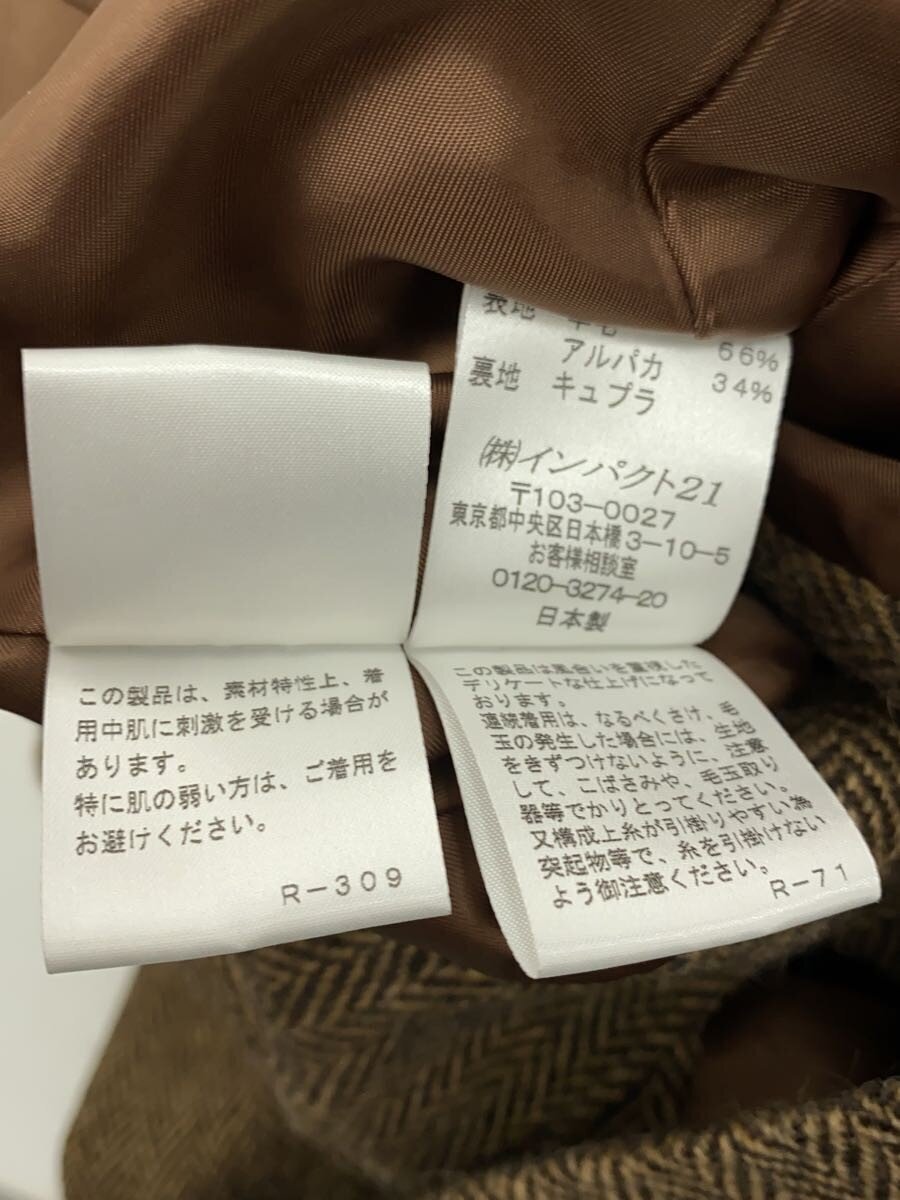 表地
アルパカ 66%
裏地 キュプラ 34%
㈱インパクト21
〒103-0027
東京都中央区日本橋3-10-5
お客様相談室
0120-3274-20
日本製
この製品は、素材特性上、着
用中肌に刺激を受ける場合が
あります。
特に肌の弱い方は、ご着用を
お避けください。
R-309
この製品は風合いを重視した
デリケートな仕上げになって
おります。
連続着用は、なるべくさけ、毛
玉の発生した場合には、生地
をきずつけないように、注意
して、こばさみや、毛玉取り
器等でかりとってください。
又構成上糸が引掛りやすい為
突起物等で、糸を引掛けない
よう御注意ください。
R-71